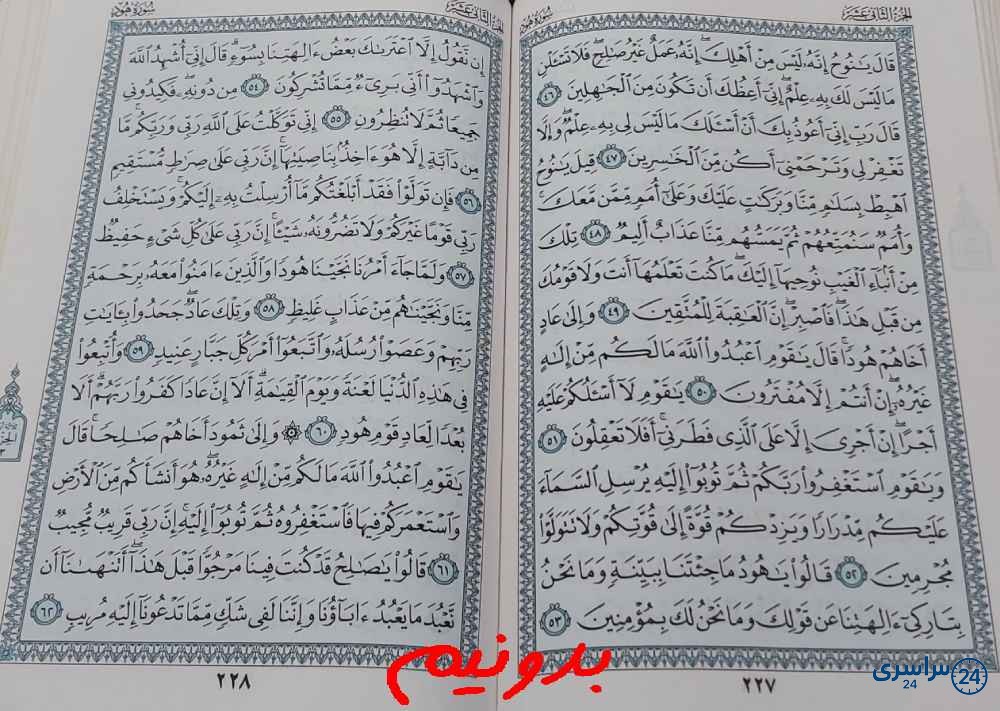 الجزء الثاني عشر
سورة هود
قَالَ يَٰنُوحُ إِنَّهُۥ لَيۡسَ مِنۡ أَهۡلِكَۖ إِنَّهُۥ عَمَلٌ غَيۡرُ صَٰلِحٖۖ فَلَا تَسۡـَٔلۡنِ
مَا لَيۡسَ لَكَ بِهِۦ عِلۡمٌۖ إِنِّيٓ أَعِظُكَ أَن تَكُونَ مِنَ ٱلۡجَٰهِلِينَ ٤٦
قَالَ رَبِّ إِنِّيٓ أَعُوذُ بِكَ أَنۡ أَسۡـَٔلَكَ مَا لَيۡسَ لِي بِهِۦ عِلۡمٞۖ وَإِلَّا
تَغۡفِرۡ لِي وَتَرۡحَمۡنِيٓ أَكُن مِّنَ ٱلۡخَٰسِرِينَ ٤٧ قِيلَ يَٰنُوحُ
ٱهۡبِطۡ بِسَلَٰمٖ مِّنَّا وَبَرَكَٰتٍ عَلَيۡكَ وَعَلَىٰٓ أُمَمٖ مِّمَّن مَّعَكَۚ
وَأُمَمٞ سَنُمَتِّعُهُمۡ ثُمَّ يَمَسُّهُم مِّنَّا عَذَابٌ أَلِيمٞ ٤٨ تِلۡكَ
مِنۡ أَنۢبَآءِ ٱلۡغَيۡبِ نُوحِيهَآ إِلَيۡكَۖ مَا كُنتَ تَعۡلَمُهَآ أَنتَ وَلَا قَوۡمُكَ
مِن قَبۡلِ هَٰذَاۖ فَٱصۡبِرۡۖ إِنَّ ٱلۡعَٰقِبَةَ لِلۡمُتَّقِينَ ٤٩ وَإِلَىٰ عَادٍ
أَخَاهُمۡ هُودٗاۚ قَالَ يَٰقَوۡمِ ٱعۡبُدُواْ ٱللَّهَ مَا لَكُم مِّنۡ إِلَٰهٍ
غَيۡرُهُۥٓۖ إِنۡ أَنتُمۡ إِلَّا مُفۡتَرُونَ ٥٠ يَٰقَوۡمِ لَآ أَسۡـَٔلُكُمۡ عَلَيۡهِ
أَجۡرًاۖ إِنۡ أَجۡرِيَ إِلَّا عَلَى ٱلَّذِي فَطَرَنِيٓۚ أَفَلَا تَعۡقِلُونَ ٥١
وَيَٰقَوۡمِ ٱسۡتَغۡفِرُواْ رَبَّكُمۡ ثُمَّ تُوبُوٓاْ إِلَيۡهِ يُرۡسِلِ ٱلسَّمَآءَ
عَلَيۡكُم مِّدۡرَارٗا وَيَزِدۡكُمۡ قُوَّةً إِلَىٰ قُوَّتِكُمۡ وَلَا تَتَوَلَّوۡاْ
مُجۡرِمِينَ ٥٢ قَالُواْ يَٰهُودُ مَا جِئۡتَنَا بِبَيِّنَةٖ وَمَا نَحۡنُ
بِتَارِكِيٓ ءَالِهَتِنَا عَن قَوۡلِكَ وَمَا نَحۡنُ لَكَ بِمُؤۡمِنِينَ ٥٣
٢٢٧
الجزء الثاني عشر
سورة هود
إِن نَّقُولُ إِلَّا ٱعۡتَرَىٰكَ بَعۡضُ ءَالِهَتِنَا بِسُوٓءٖۗ قَالَ إِنِّيٓ أُشۡهِدُ ٱللَّهَ
وَٱشۡهَدُوٓاْ أَنِّي بَرِيٓءٞ مِّمَّا تُشۡرِكُونَ ٥٤ مِن دُونِهِۦۖ فَكِيدُونِي
جَمِيعٗا ثُمَّ لَا تُنظِرُونِ ٥٥ إِنِّي تَوَكَّلۡتُ عَلَى ٱللَّهِ رَبِّي وَرَبِّكُمۚ مَّا
مِن دَآبَّةٍ إِلَّا هُوَ ءَاخِذُۢ بِنَاصِيَتِهَآۚ إِنَّ رَبِّي عَلَىٰ صِرَٰطٖ مُّسۡتَقِيمٖ
٥٦ فَإِن تَوَلَّوۡاْ فَقَدۡ أَبۡلَغۡتُكُم مَّآ أُرۡسِلۡتُ بِهِۦٓ إِلَيۡكُمۡۚ وَيَسۡتَخۡلِفُ
رَبِّي قَوۡمًا غَيۡرَكُمۡ وَلَا تَضُرُّونَهُۥ شَيۡـًٔاۚ إِنَّ رَبِّي عَلَىٰ كُلِّ شَيۡءٍ حَفِيظٞ
٥٧ وَلَمَّا جَآءَ أَمۡرُنَا نَجَّيۡنَا هُودٗا وَٱلَّذِينَ ءَامَنُواْ مَعَهُۥ بِرَحۡمَةٖ
مِّنَّا وَنَجَّيۡنَٰهُم مِّنۡ عَذَابٍ غَلِيظٖ ٥٨ وَتِلۡكَ عَادٞۖ جَحَدُواْ بِـَٔايَٰتِ
رَبِّهِمۡ وَعَصَوۡاْ رُسُلَهُۥ وَٱتَّبَعُوٓاْ أَمۡرَ كُلِّ جَبَّارٍ عَنِيدٖ ٥٩ وَأُتۡبِعُواْ
فِي هَٰذِهِ ٱلدُّنۡيَا لَعۡنَةٗ وَيَوۡمَ ٱلۡقِيَٰمَةِۗ أَلَآ إِنَّ عَادٗا كَفَرُواْ رَبَّهُمۡۗ أَلَا
بُعۡدٗا لِّعَادٖ قَوۡمِ هُودٖ ٦٠ ۞ وَإِلَىٰ ثَمُودَ أَخَاهُمۡ صَٰلِحٗاۚ قَالَ
يَٰقَوۡمِ ٱعۡبُدُواْ ٱللَّهَ مَا لَكُم مِّنۡ إِلَٰهٍ غَيۡرُهُۥۖ هُوَ أَنشَأَكُم مِّنَ ٱلۡأَرۡضِ
وَٱسۡتَعۡمَرَكُمۡ فِيهَا فَٱسۡتَغۡفِرُوهُ ثُمَّ تُوبُوٓاْ إِلَيۡهِۚ إِنَّ رَبِّي قَرِيبٞ مُّجِيبٞ
٦١ قَالُواْ يَٰصَٰلِحُ قَدۡ كُنتَ فِينَا مَرۡجُوّٗا قَبۡلَ هَٰذَآۖ أَتَنۡهَىٰنَآ أَن
نَّعۡبُدَ مَا يَعۡبُدُ ءَابَآؤُنَا وَإِنَّنَا لَفِي شَكّٖ مِّمَّا تَدۡعُونَآ إِلَيۡهِ مُرِيبٖ ٦٢
٢٢٨
بدونیم
سراسری 24
24